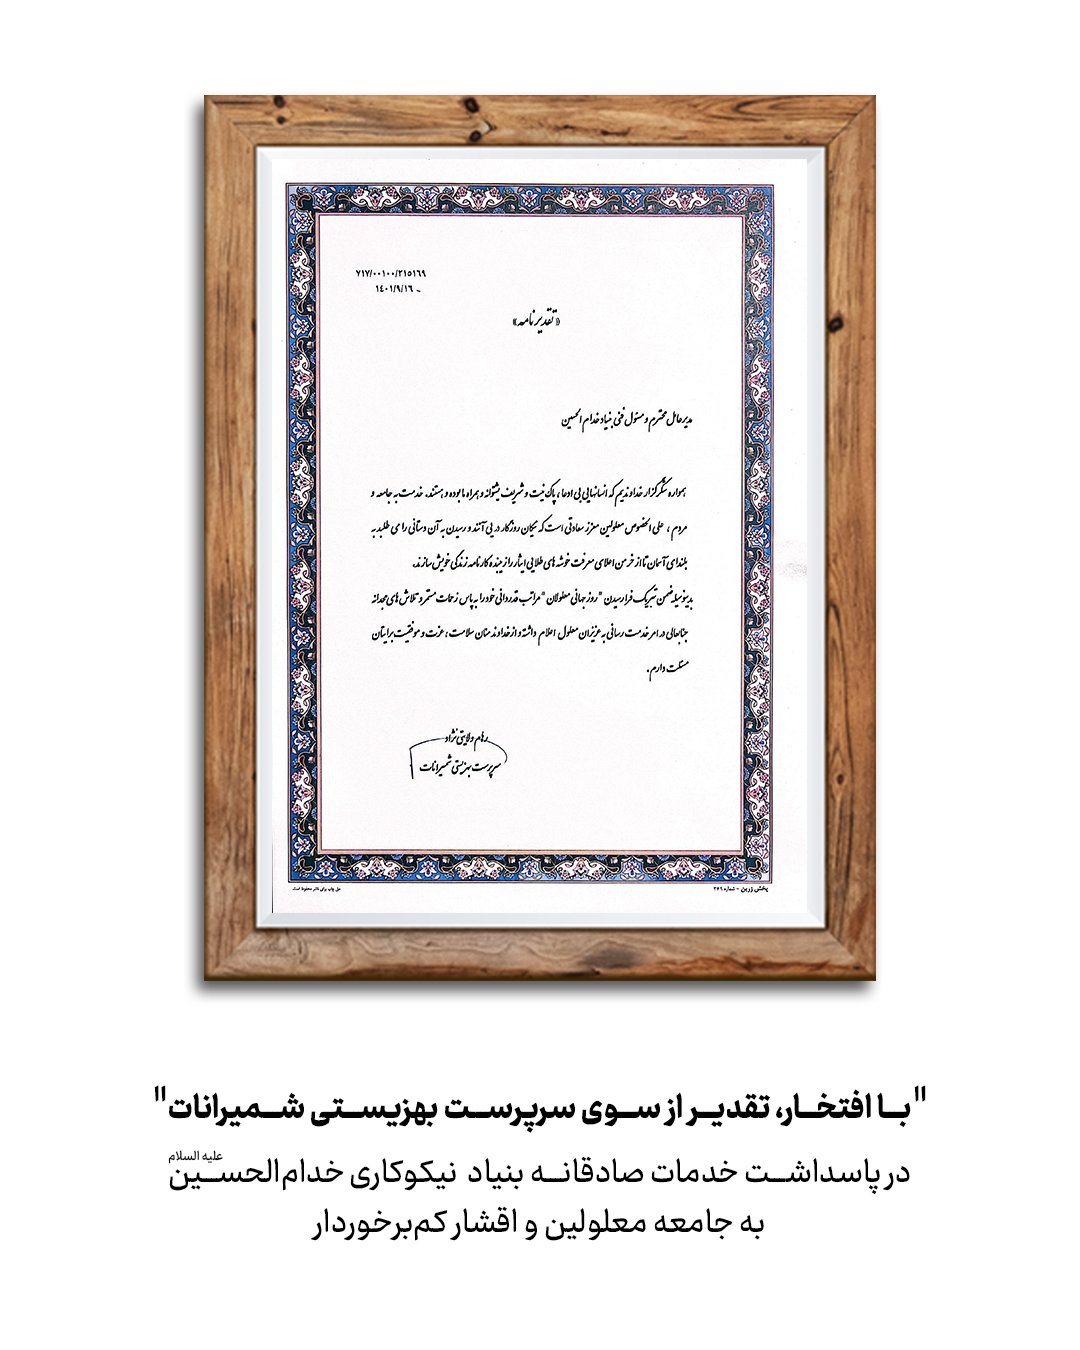 ۷۱۷/۰۰۱۰۰/۲۱۵۱۶۹
۱۴۰۱/۹/۱۶
«تقدیرنامه»
مدیرعامل محترم و مسئول فنی بنیاد خدام الحسین
همواره شکرگزار خداوندیم که انسانهایی بی ادعا ، پاک نیت و شریف پشتوانه و همراه ما بوده و هستند. خدمت به جامعه و
مردم ، علی الخصوص معلولین معزز سعادتی است که نیکان روزگار در پی آنند و رسیدن به آن دستانی را می طلبد به
بلندای آسمان تا از خرمن اعلای معرفت خوشه های طلایی ایثار را زیبنده کارنامه زندگی خویش سازند.
بدینوسیله ضمن تبریک فرارسیدن "روز جهانی معلولان" مراتب قدردانی خود را به پاس زحمات مستمر و تلاش های مجدانه
جنابعالی در امر خدمت رسانی به عزیزان معلول اعلام داشته و از خداوند منان سلامت ، عزت و موفقیت برایتان
مسئلت دارم .
رهام ولایتی نژاد
سرپرست بهزیستی شمیرانات
پخش زرین - شماره ۲۶۹
حق چاپ برای ناشر محفوظ است
"با افتخار، تقدیر از سوی سرپرست بهزیستی شمیرانات"
در پاسداشت خدمات صادقانه بنیاد نیکوکاری خدام‌الحسین علیه السلام
به جامعه معلولین و اقشار کم‌برخوردار